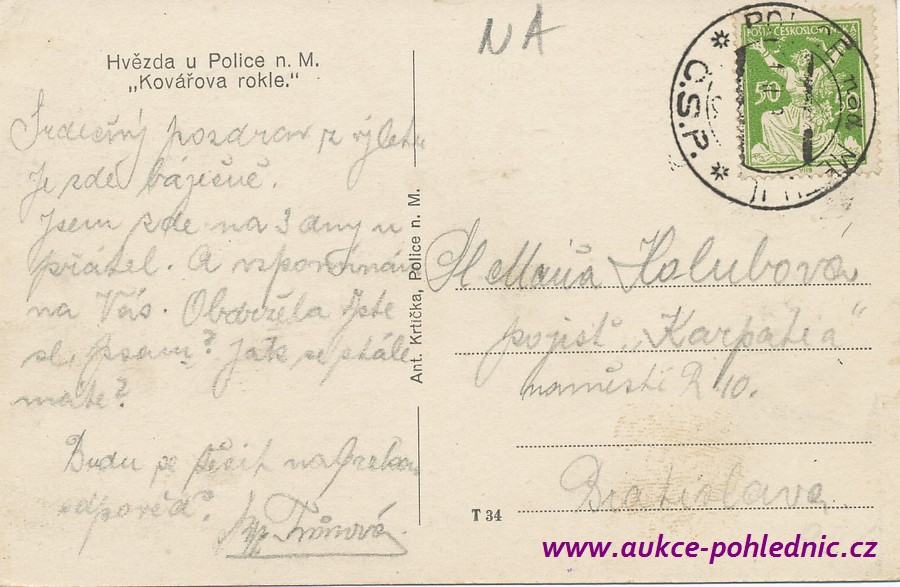 NA
Hvězda u Police n. M.
„Kovářova rokle."
Srdečný pozdrav z výletu
Je zde báječně.
Jsem zde na 3 dny u
přátel. A vzpomínám
na Vás. Obdržela jste
psaní? Jak se stále
máte?
Budu se těšit na
odpověd?
Tůmová
Ant. Krtička, Police n. M.
T 34
POŠTA ČESKOSLOVENSKÁ
50
nad
* Č.S.P. *
Sl Holubová
pojišť. „Karpatia"
náměstí 10.
Bratislava
www.aukce-pohlednic.cz